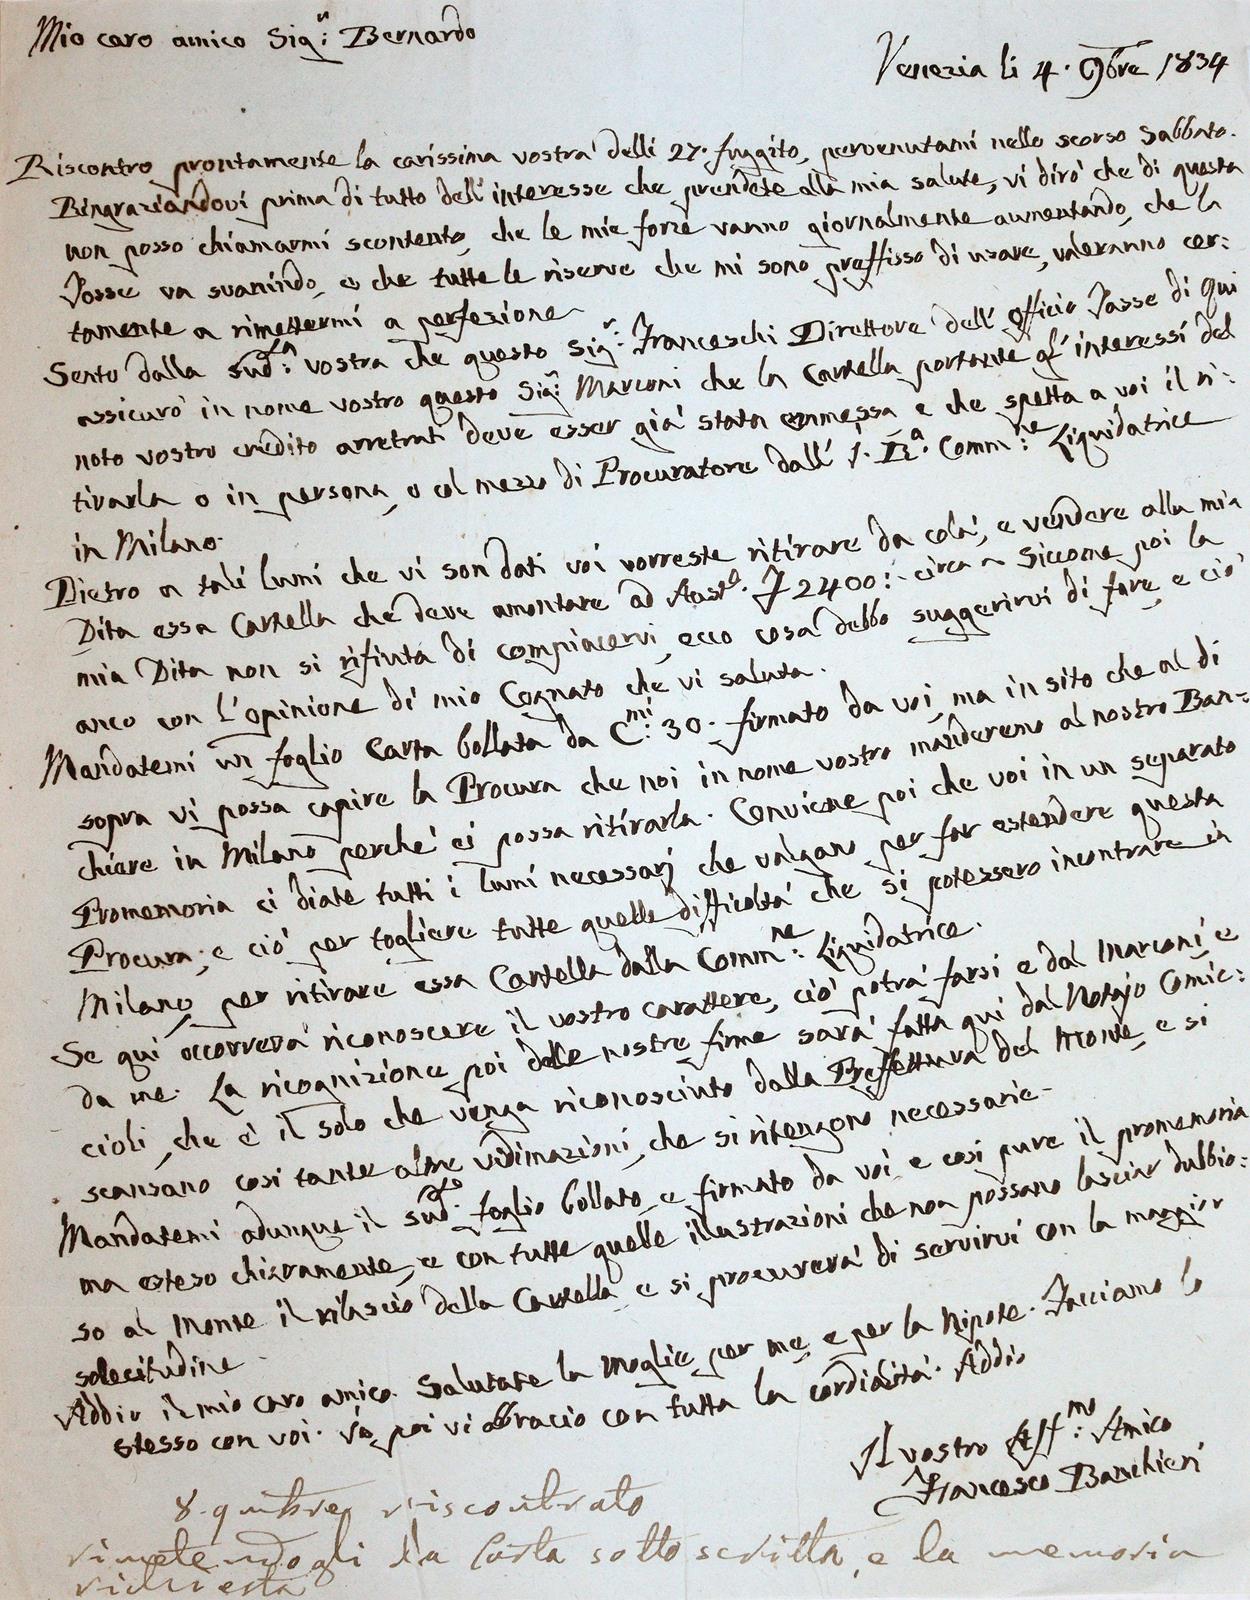 Mio caro amico Sigr: Bernardo
Venezia li 4. 9bre 1834
Riscontro prontamente la carissima vostra delli 27. fuggito, pervenutami nello scorso Sabbato.
Ringraziandovi prima di tutto dell'interesse che prendete alla mia salute, vi dirò che di questa
non posso chiamarmi scontento, che le mie forze vanno giornalmente aumentando, che la
Tosse va svanindo, e che tutte le riserve che mi sono preffisso di usare, valeranno cer:
tamente a rimettermi a perfezione
Sento dalla sudta: vostra che questo Sigr: Franceschi Direttore dell'Officio Tasse di qui
assicurò in nome vostro questo Sigr: Marconi che la Cartella portante gl'interessi del
noto vostro credito arretrati deve esser già stata emmessa e che spetta a voi il ri:
tirarla o in persona, o col mezzo di Procuratore dall'I. Ra. Commne: Liquidatrice
in Milano.
Dietro a tali lumi che vi son dati voi vorreste ritirare da colà, e vendere alla mia
Dita essa Cartella che deve amontare ad Aust. 2400:- circa. Siccome poi la
mia Dita non si rifiuta di compiacervi, ecco cosa debbo suggerirvi di fare, e ciò
anco con l'opinione di mio Cognato che vi saluta.
Mandatemi un foglio Carta bollata da Cmi: 30. firmato da voi, ma in sito che al di
sopra vi possa capire la Procura che noi in nome vostro manderemo al nostro Ban:
chiere in Milano perchè ei possa ritirarla. Conviene poi che voi in un separato
Promemoria ci diate tutti i lumi necessarj che valgano per far estendere questa
Procura; e ciò per togliere tutte quelle difficoltà che si potessero incontrare in
Milano, per ritirare essa Cartella dalla Commne: Liquidatrice.
Se qui occorrerà riconoscere il vostro carattere, ciò potrà farsi e dal Marconi e
da me. La ricognizione poi delle nostre firme sarà fatta qui dal Notajo Comic:
cioli, che è il solo che venga riconosciuto dalla Preffettura del Monte, e si
scansano così tante altre vidimazioni, che si ritengono necessarie.
Mandatemi adunque il sudto. foglio bollato, e firmato da voi e così pure il promemoria
ma esteso chiaramente, e con tutte quelle illustrazioni che non possano lasciar dubbio:
so al Monte il rilascio della Cartella e si procurerà di servirvi con la maggior
solecitudine
Addio il mio caro amico. Salutate la Moglie per me, e per la Nipote. Facciamo lo
stesso con voi. Io poi vi abbracio con tutta la cordialità. Addio
Il vostro Affmo: Amico
Francesco Banchieri
8. 9mbre, riscontrato
rimetendogli la Carta sotto scritta, e la memoria
richiesta